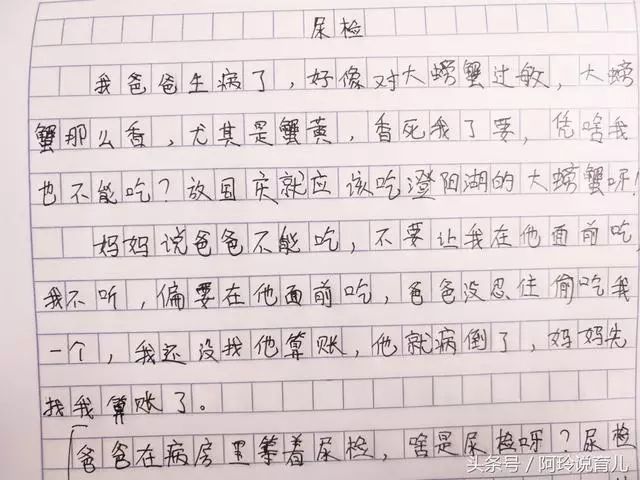 尿检
我爸爸生病了，好像对大螃蟹过敏，大螃
蟹那么香，尤其是蟹黄，香死我了要，凭啥我
也不能吃？放国庆就应该吃澄阳湖的大螃蟹呀！
妈妈说爸爸不能吃，不要让我在他面前吃，
我不听，偏要在他面前吃，爸爸没忍住偷吃我
一个，我还没找他算账，他就病倒了，妈妈先
找我算账了。
爸爸在病房里等着尿检，啥是尿检呀？尿检
头条号／阿玲说育儿